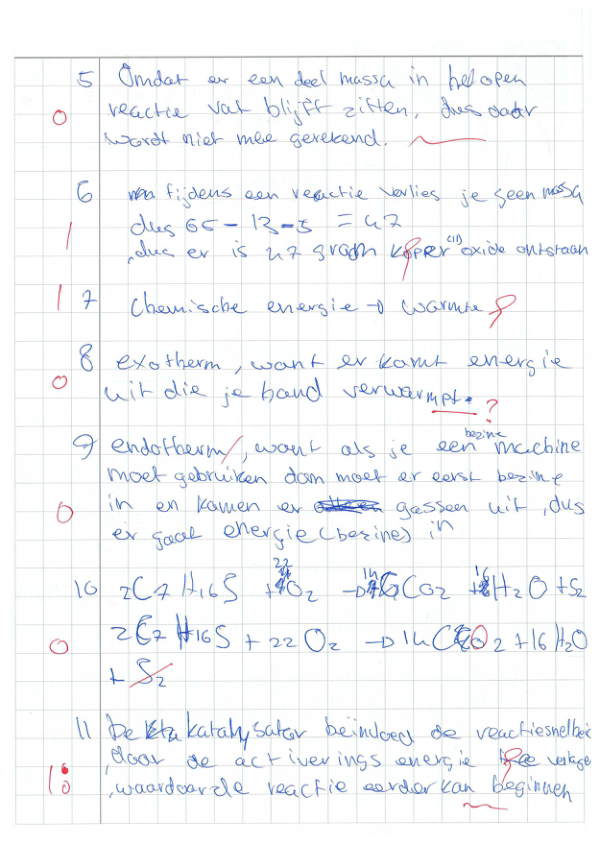 5 Omdat er een deel massa in het open
0 reactie vat blijft zitten, dus daar
wordt niet mee gerekend.
6 tijdens een reactie verlies je geen massa
1 dus 65 - 13 - 5 = 47
dus er is 47 gram koper (II) oxide ontstaan
1 7 Chemische energie → warmte
8 exotherm, want er komt energie
0 uit die je hand verwarmpt. ?
9 endotherm, want als je een bezine machine
moet gebruiken dan moet er eerst bezine
0 in en komen er gassen uit, dus
er gaat energie (bezine) in
10 2C7H16S + 22O2 → 14CO2 + 16H2O + S2
0 2C7H16S + 22O2 → 14CO2 + 16H2O
+ S2
11 De katalysator beïnvloed de reactiesnelheid
door de activerings energie verlage
1 waardoor de reactie eerder kan beginnen